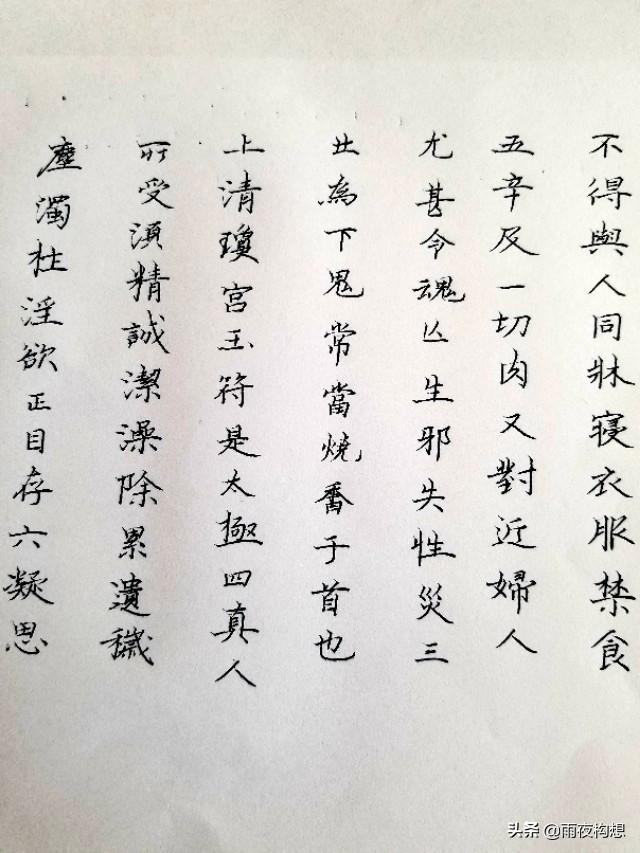 不得與人同牀寝衣服禁食
五辛及一切肉又對近婦人
尤甚令魂亡生邪失性災三
世為下鬼常當燒香于首也
上清瓊宫玉符是太極四真人
所受湏精誠潔澡除累遺穢
塵濁杜淫欲正目存六凝思
头条 @雨夜构想